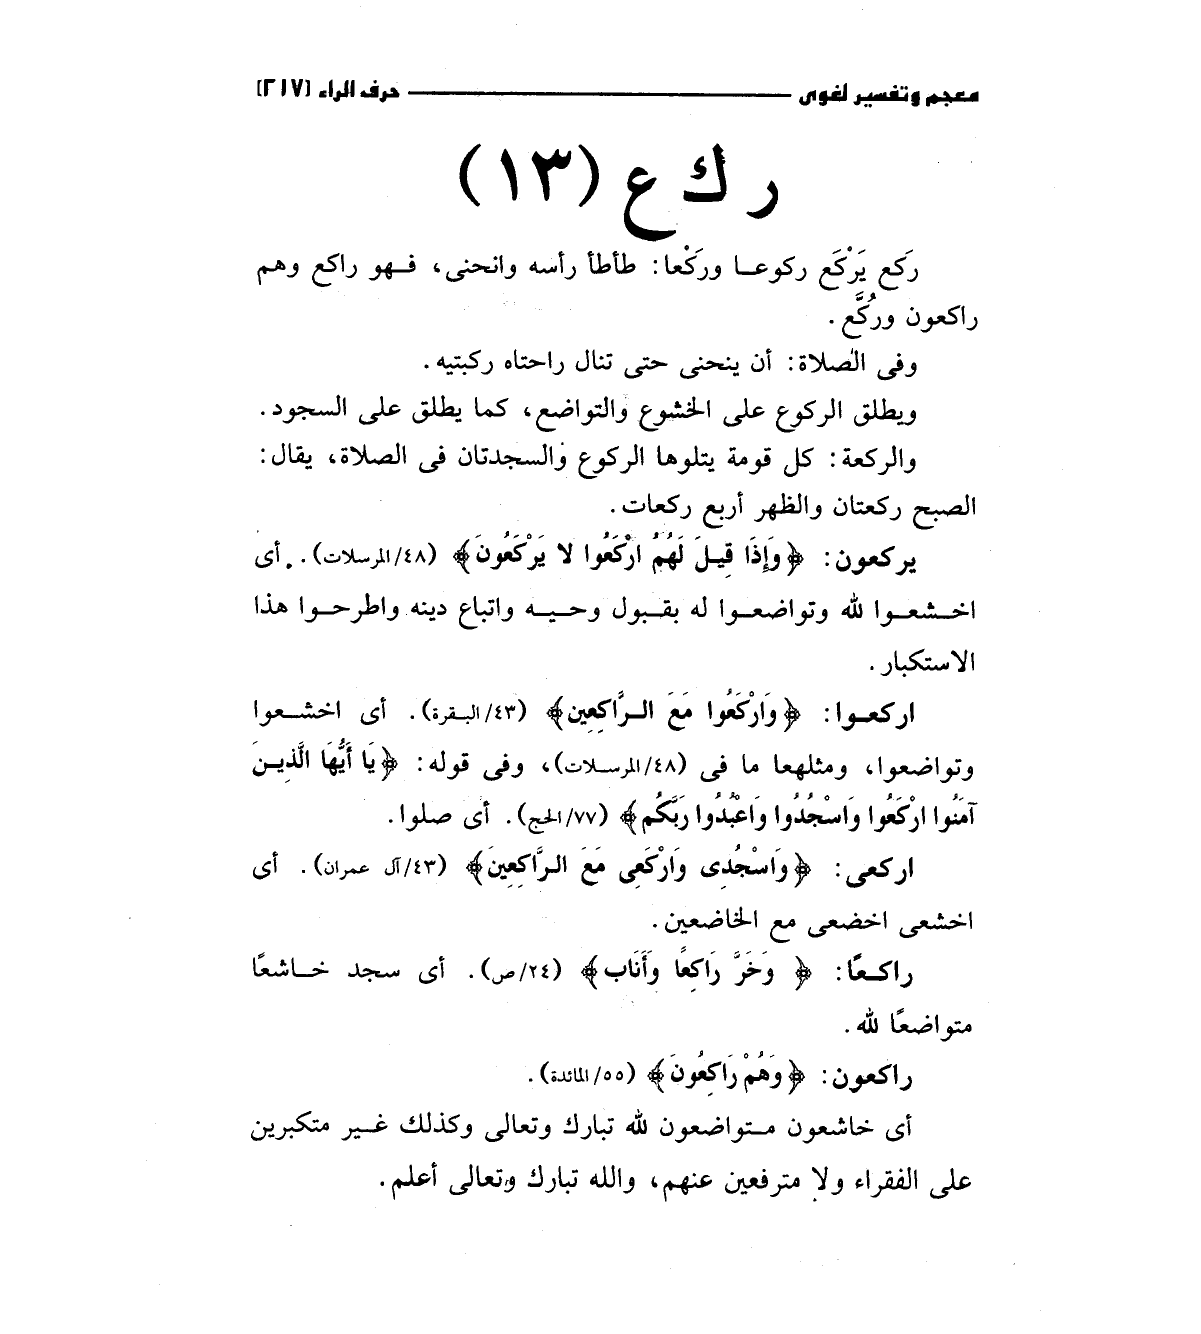 معجم وتفسير لغوى حرف الراء [٢١٧]
ر ك ع (١٣)
رَكع يَرْكَع ركوعا وركْعا: طأطأ رأسه وانحنى، فهو راكع وهم
راكعون ورُكَّع.
وفى الصلاة: أن ينحنى حتى تنال راحتاه ركبتيه.
ويطلق الركوع على الخشوع والتواضع، كما يطلق على السجود.
والركعة: كل قومة يتلوها الركوع والسجدتان فى الصلاة، يقال:
الصبح ركعتان والظهر أربع ركعات.
يركعون: ﴿وَإِذَا قِيلَ لَهُمُ ارْكَعُوا لا يَرْكَعُونَ﴾ (٤٨/المرسلات). أى
اخشعوا لله وتواضعوا له بقبول وحيه واتباع دينه واطرحوا هذا
الاستكبار.
اركعوا: ﴿وَارْكَعُوا مَعَ الرَّاكِعِين﴾ (٤٣/البقرة). أى اخشعوا
وتواضعوا، ومثلهعا ما فى (٤٨/المرسلات)، وفى قوله: ﴿يَا أَيُّهَا الَّذِينَ
آمَنُوا ارْكَعُوا وَاسْجُدُوا وَاعْبُدُوا رَبَّكُم﴾ (٧٧/الحج). أى صلوا.
اركعى: ﴿وَاسْجُدِى وَارْكَعِى مَعَ الرَّاكِعِينَ﴾ (٤٣/آل عمران). أى
اخشعى اخضعى مع الخاضعين.
راكعًا: ﴿وَخَرَّ رَاكِعًا وَأَنَاب﴾ (٢٤/ص). أى سجد خاشعًا
متواضعًا لله.
راكعون: ﴿وَهُمْ رَاكِعُونَ﴾ (٥٥/المائدة).
أى خاشعون متواضعون لله تبارك وتعالى وكذلك غير متكبرين
على الفقراء ولا مترفعين عنهم، والله تبارك وتعالى أعلم.